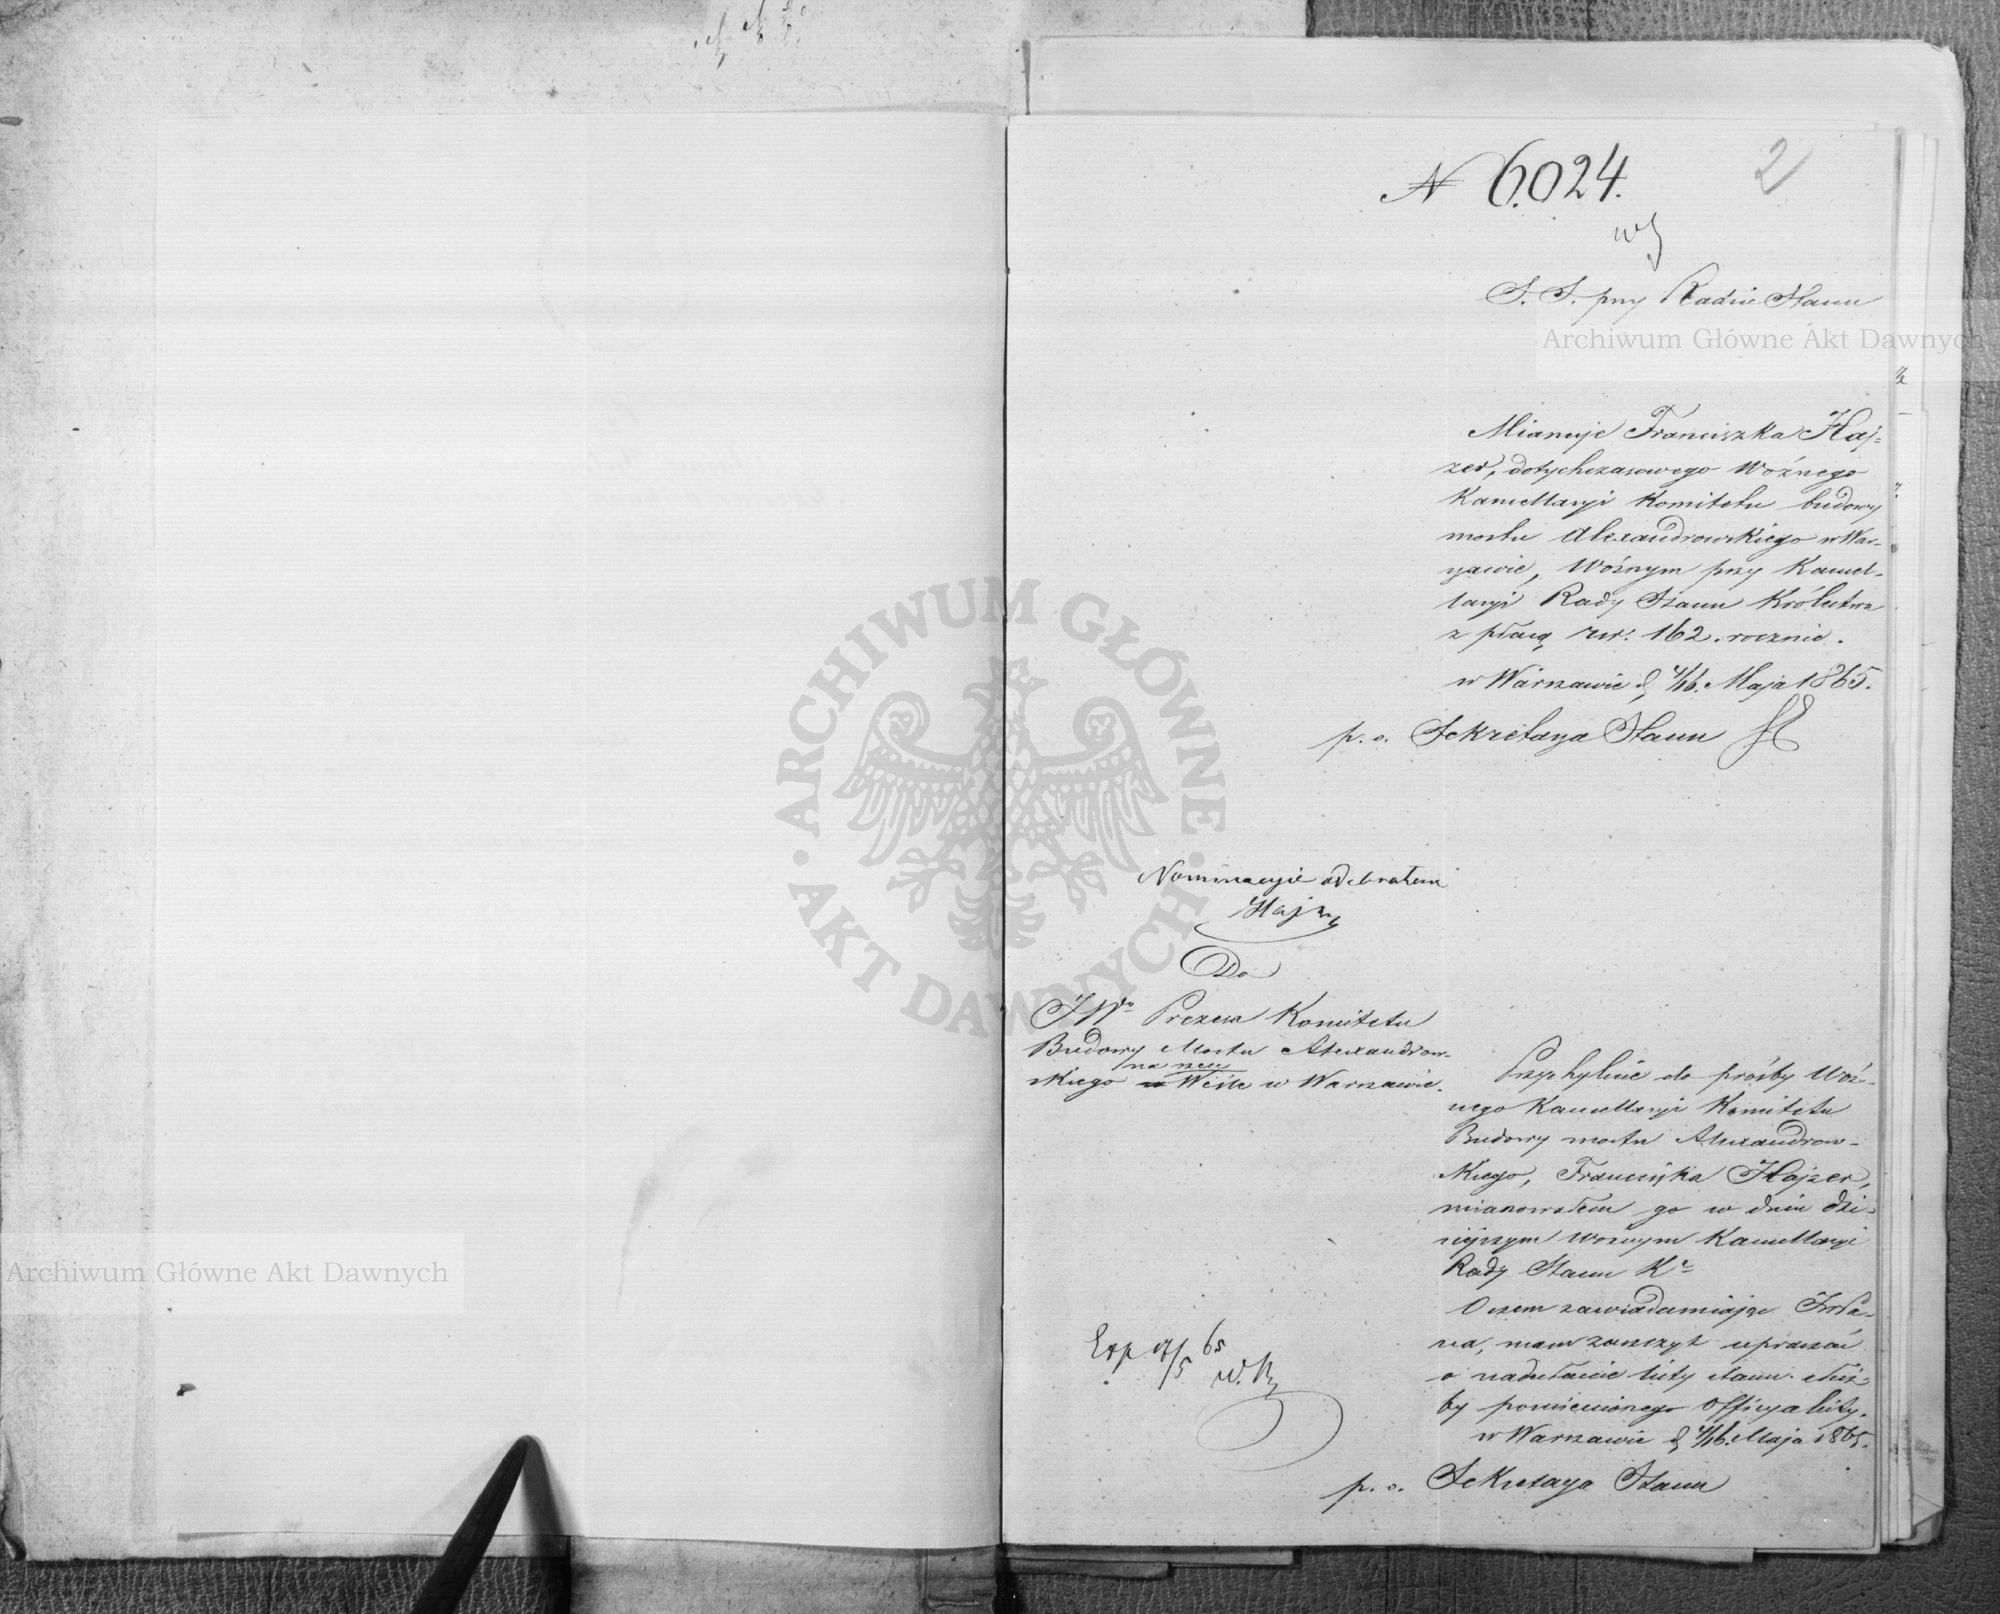 N 6.024.
2
S. S. przy Radzie Stanu
Mianuje Franciszka Haj-
zer, dotychczasowego Woźnego
Kancellaryi Komitetu budowy
mostu Alexandrowskiego w War-
szawie, Woźnym przy Kancel-
laryi Rady Stanu Królestwa
z płacą rsr. 162. rocznie.
w Warszawie d. 4/16. Maja 1865.
p. o. Sekretarza Stanu
Nominacyie odebrałem
Hajzer
Do
JWo Prezesa Komitetu
Budowy Mostu Alexandrow-
na rzece
skiego Wiśle w Warszawie.
Przychylnie do prośby Woź-
nego Kancellaryi Komitetu
Budowy mostu Alexandrow-
skiego, Franciszka Hajzer,
mianowałem go w dniu dzi-
siejszym woźnym Kancellaryi
Rady Stanu K
O czem zawiadamiając JWPa-
na, mam zaszczyt upraszać
o nadesłanie listy stanu służ-
by pomienionego Officyalisty.
w Warszawie d. 4/16. Maja 1865.
p. o. Sekretarza Stanu
Exp 17/5 65
Archiwum Główne Akt Dawnych
Archiwum Główne Akt Dawnych
ARCHIWUM GŁÓWNE AKT DAWNYCH